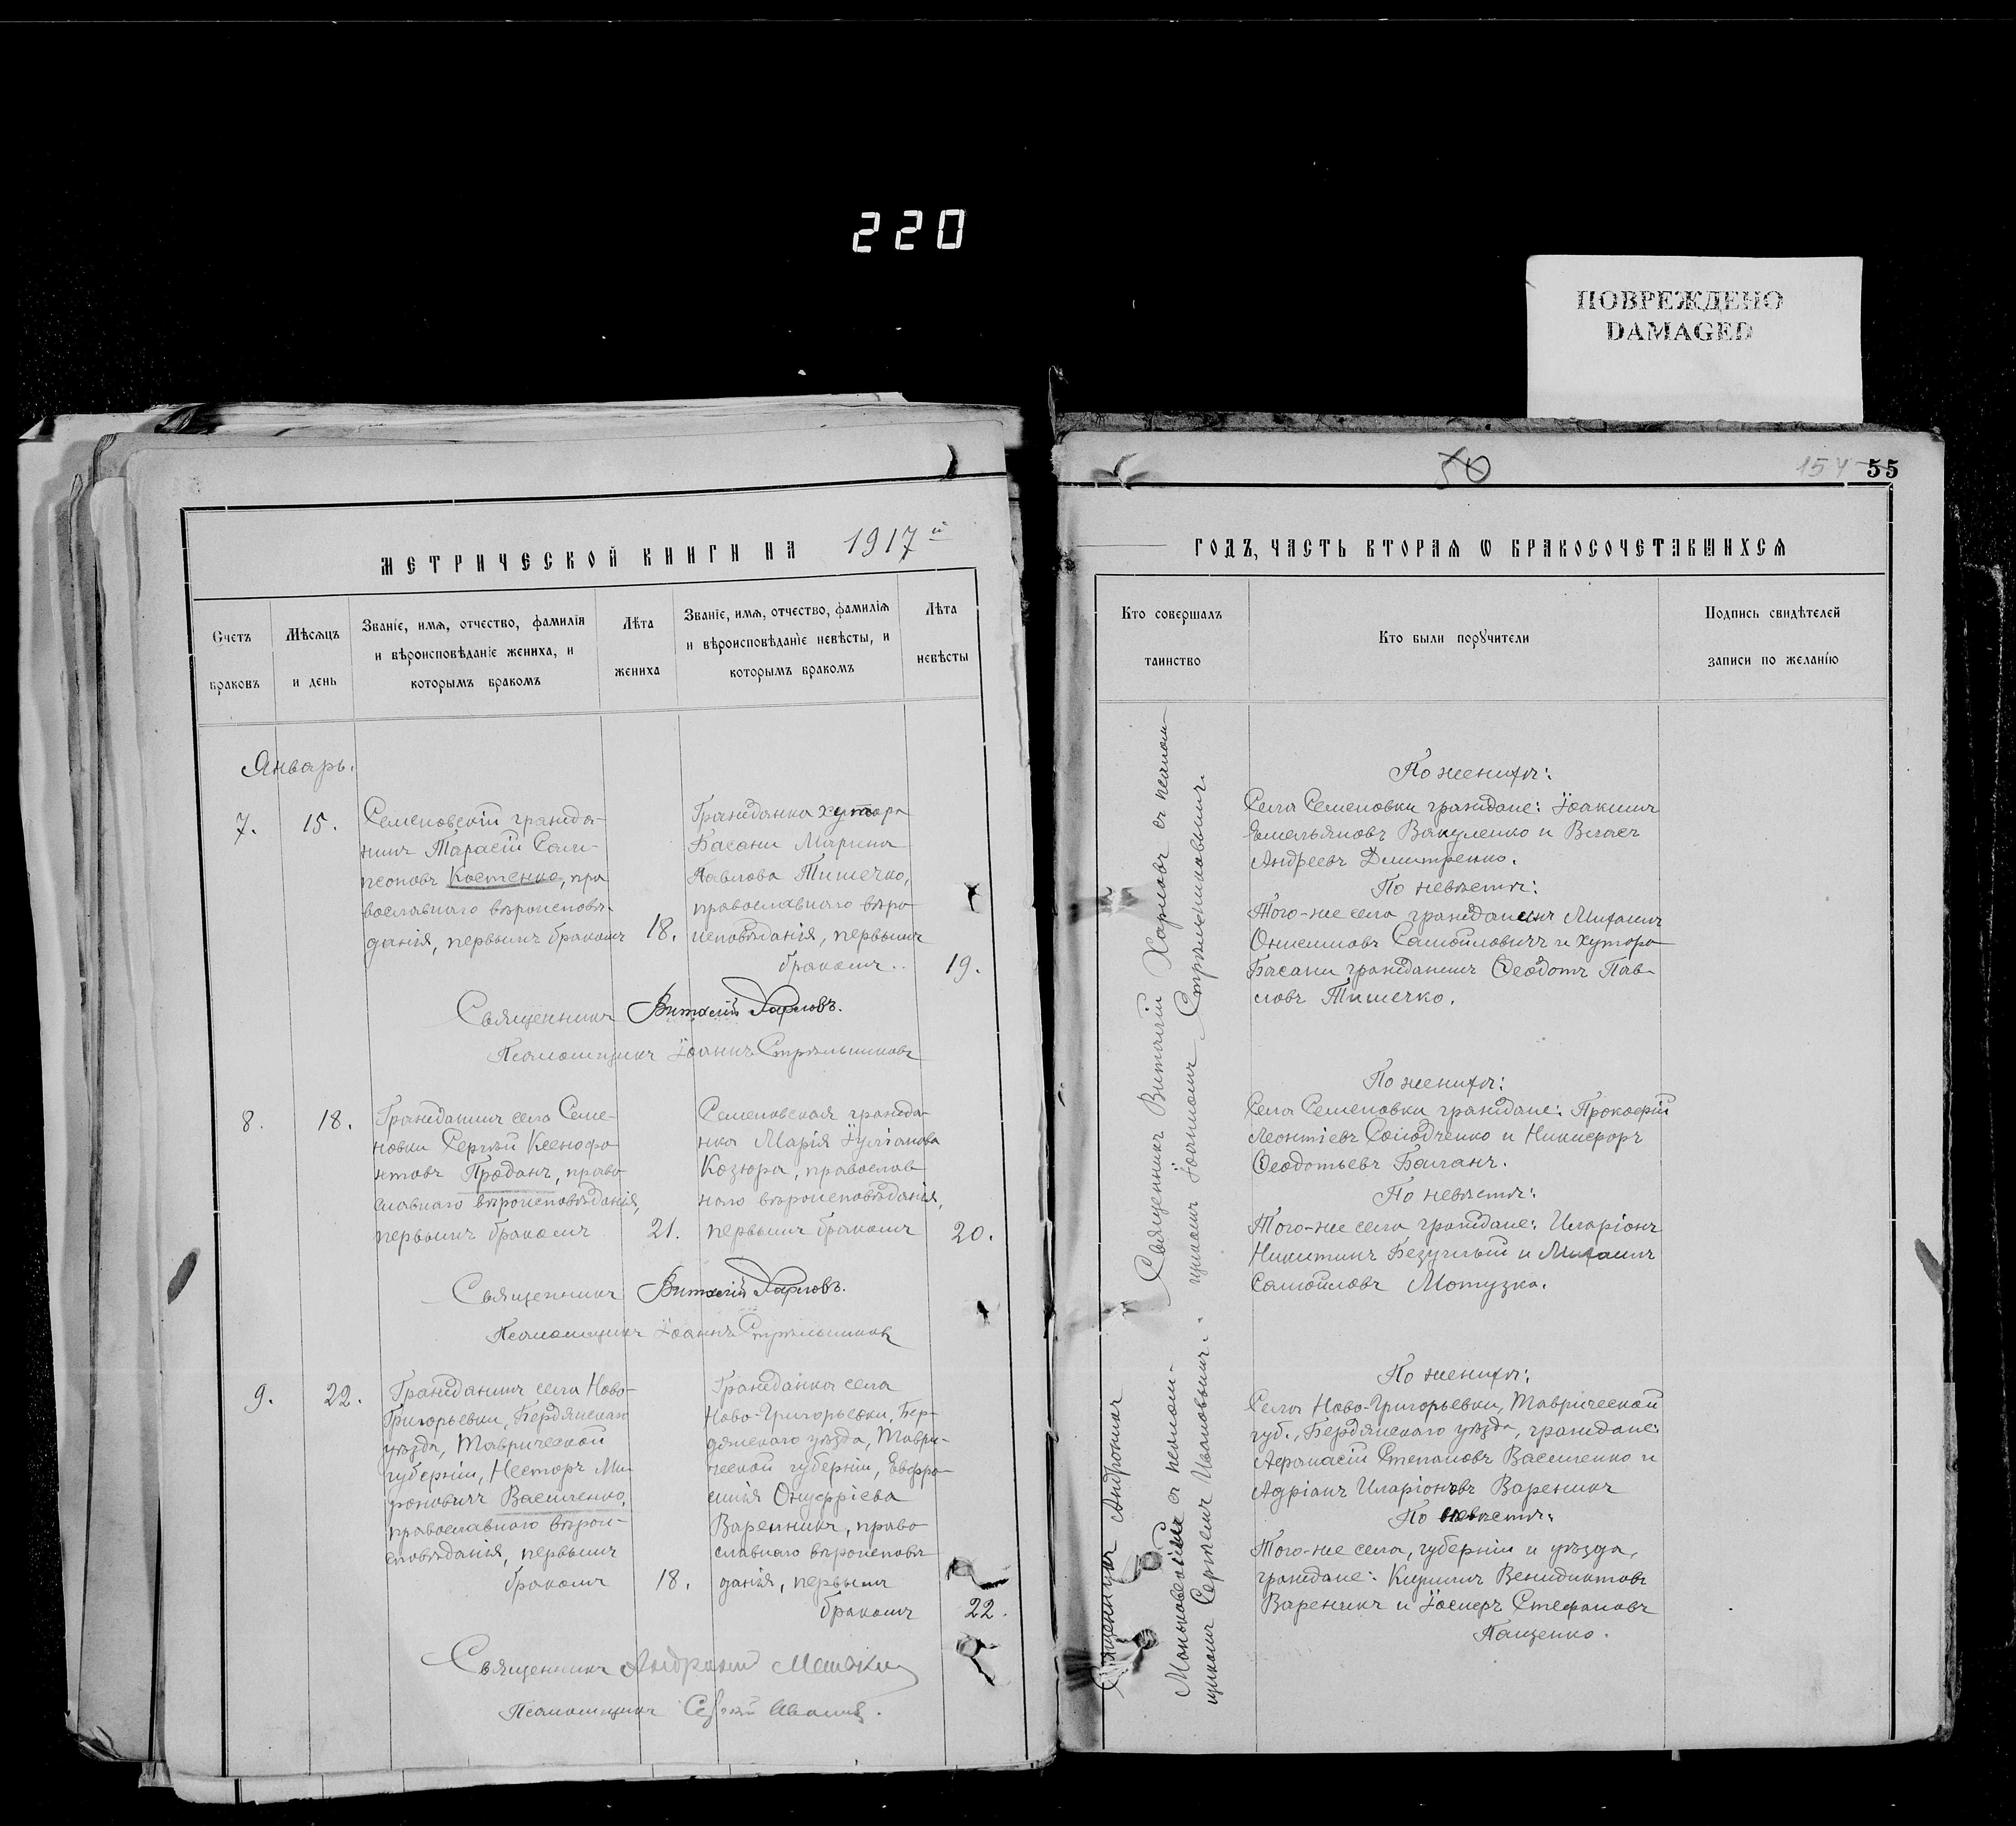 220
ПОВРЕЖДЕНО
DAMAGED
МЕТРИЧЕСКОЙ КНИГИ НА 1917й
Счетъ
браковъ
Мѣсяцъ
и день
Званіе, имя, отчество, фамилія
и вѣроисповѣданіе жениха, и
которымъ бракомъ
Лѣта
жениха
Званіе, имя, отчество, фамилія
и вѣроисповѣданіе невѣсты, и
которымъ бракомъ
Лѣта
невѣсты
Январь.
7.
15.
Семеновскій гражда-
нинъ Тарасій Сам-
псоновъ Костенко, пра
вославнаго вѣроисповѣ-
данія, первымъ бракомъ
18.
Гражданка хутора
Басани Марина
Павлова Тишечко,
православнаго вѣро-
исповѣданія, первымъ
бракомъ.
19.
Священникъ Виталій Харловъ.
Псаломщикъ Іоаннъ Стрѣльниковъ
8.
18.
Гражданинъ села Семе-
новки Сергѣй Ксенофо-
нтовъ Проданъ, право-
славнаго вѣроисповѣданія,
первымъ бракомъ
21.
Семеновская гражда-
нка Марія Іуліанова
Козюра, православ-
наго вѣроисповѣданія,
первымъ бракомъ
20.
Священникъ Виталій Харловъ.
Псаломщикъ Іоаннъ Стрѣльниковъ
9.
22.
Гражданинъ села Ново-
Григорьевки, Бердянскаго
уѣзда, Таврической
губерніи, Несторъ Ми-
роновичъ Василенко,
православнаго вѣрои-
сповѣданія, первымъ
бракомъ
18.
Гражданка села
Ново-Григорьевки, Бер-
дянскаго уѣзда, Таври-
ческой губерніи, Евфро-
синія Онуфріева
Вареникъ, право-
славнаго вѣроисповѣ
данія, первымъ
бракомъ
22.
Священникъ
Псаломщикъ Сергѣй
50
154 55
ГОДЪ, ЧАСТЬ ВТОРАЯ Ѡ БРАКОСОЧЕТАВШИХСЯ
Кто совершалъ
таинство
Кто были поручители
Подпись свидѣтелей
записи по желанію
Священникъ Виталій Харловъ съ псалом-
щикомъ Іоанномъ Стрѣльниковымъ.
Священникъ Андроникъ
съ псалом-
щикомъ Сергѣемъ Ивановымъ.
По женихѣ:
Села Семеновки граждане: Іоакимъ
Емельяновъ Вакуленко и Власъ
Андреевъ Дмитренко.
По невѣстѣ:
Того-же села гражданинъ Михаилъ
Онисимовъ Самойловичъ и хутора
Басани гражданинъ Ѳеодотъ Пав-
ловъ Тишечко.
По женихѣ:
Села Семеновки граждане: Прокофій
Леонтіевъ Солодченко и Никифоръ
Ѳеодотьевъ Баланъ.
По невѣстѣ:
Того-же села граждане: Иларіонъ
Никитинъ Безуглый и Михаилъ
Самойловъ Мотузка.
По женихѣ:
Села Ново-Григорьевки, Таврической
губ., Бердянскаго уѣзда, граждане:
Афанасій Степановъ Василенко и
Адріанъ Иларіоновъ Вареникъ
По невѣстѣ:
Того-же села, губерніи и уѣзда,
граждане: Кириллъ Венидиктовъ
Вареникъ и Іосифъ Стефановъ
Пащенко.